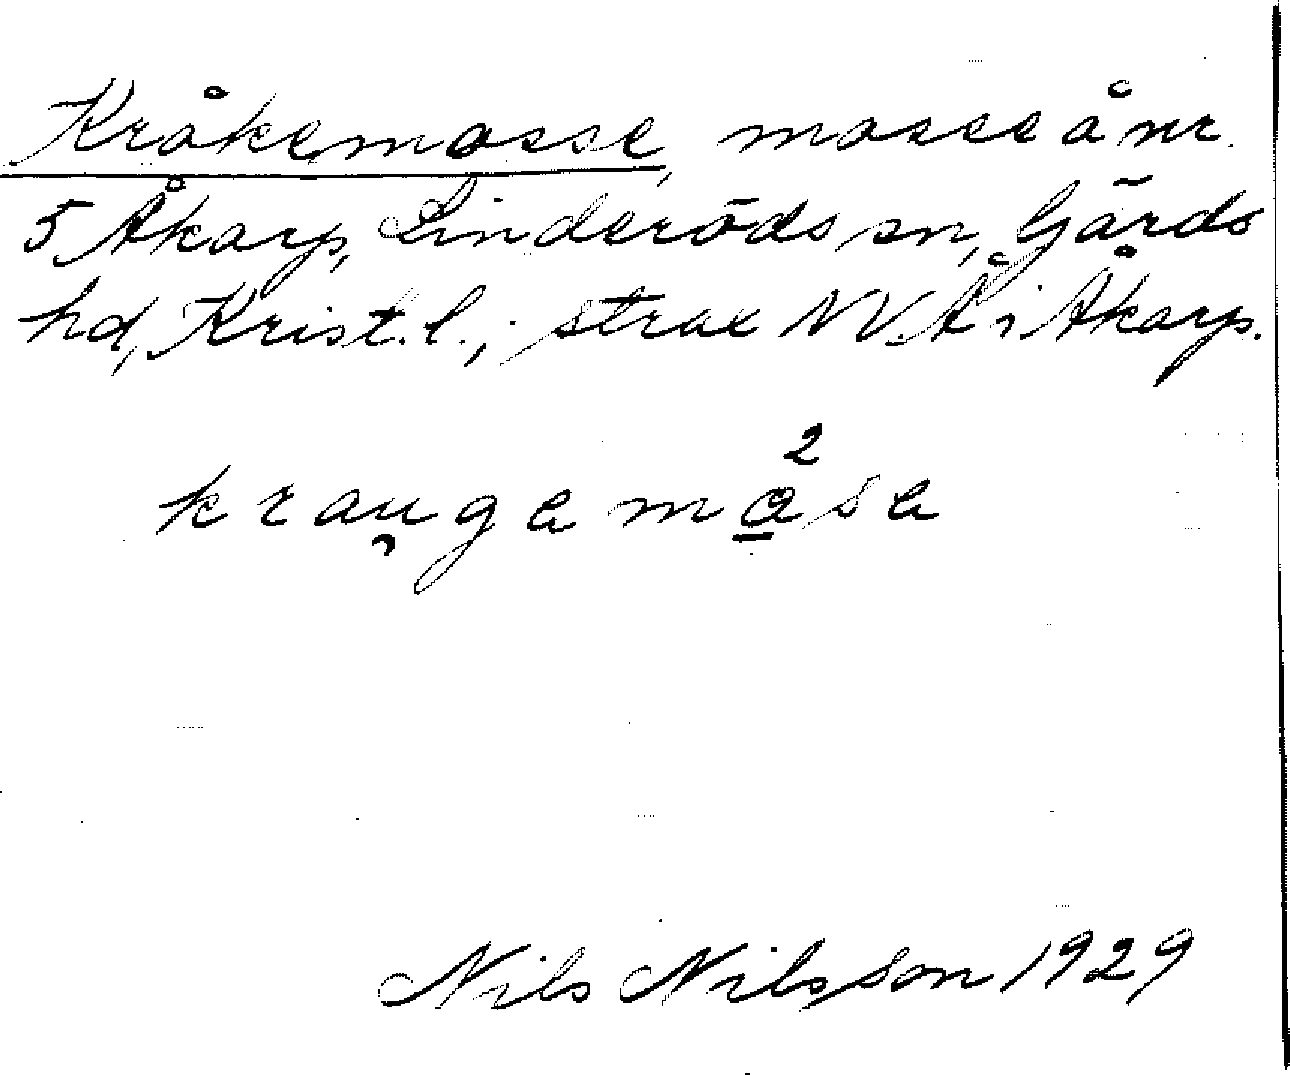 Kråkemosse, mosse å nr.
5 Åkarp, Linderöds sn, Gärds
hd, Krist. l., strax NV. Å i Åkarp.
2
kraugemåse
Nils Nilsson 1929